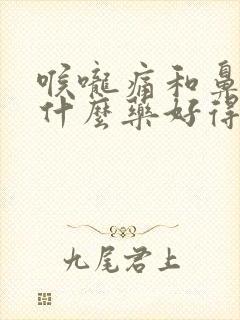 喉嚨痛和鼻
什麼藥好得
九尾君上